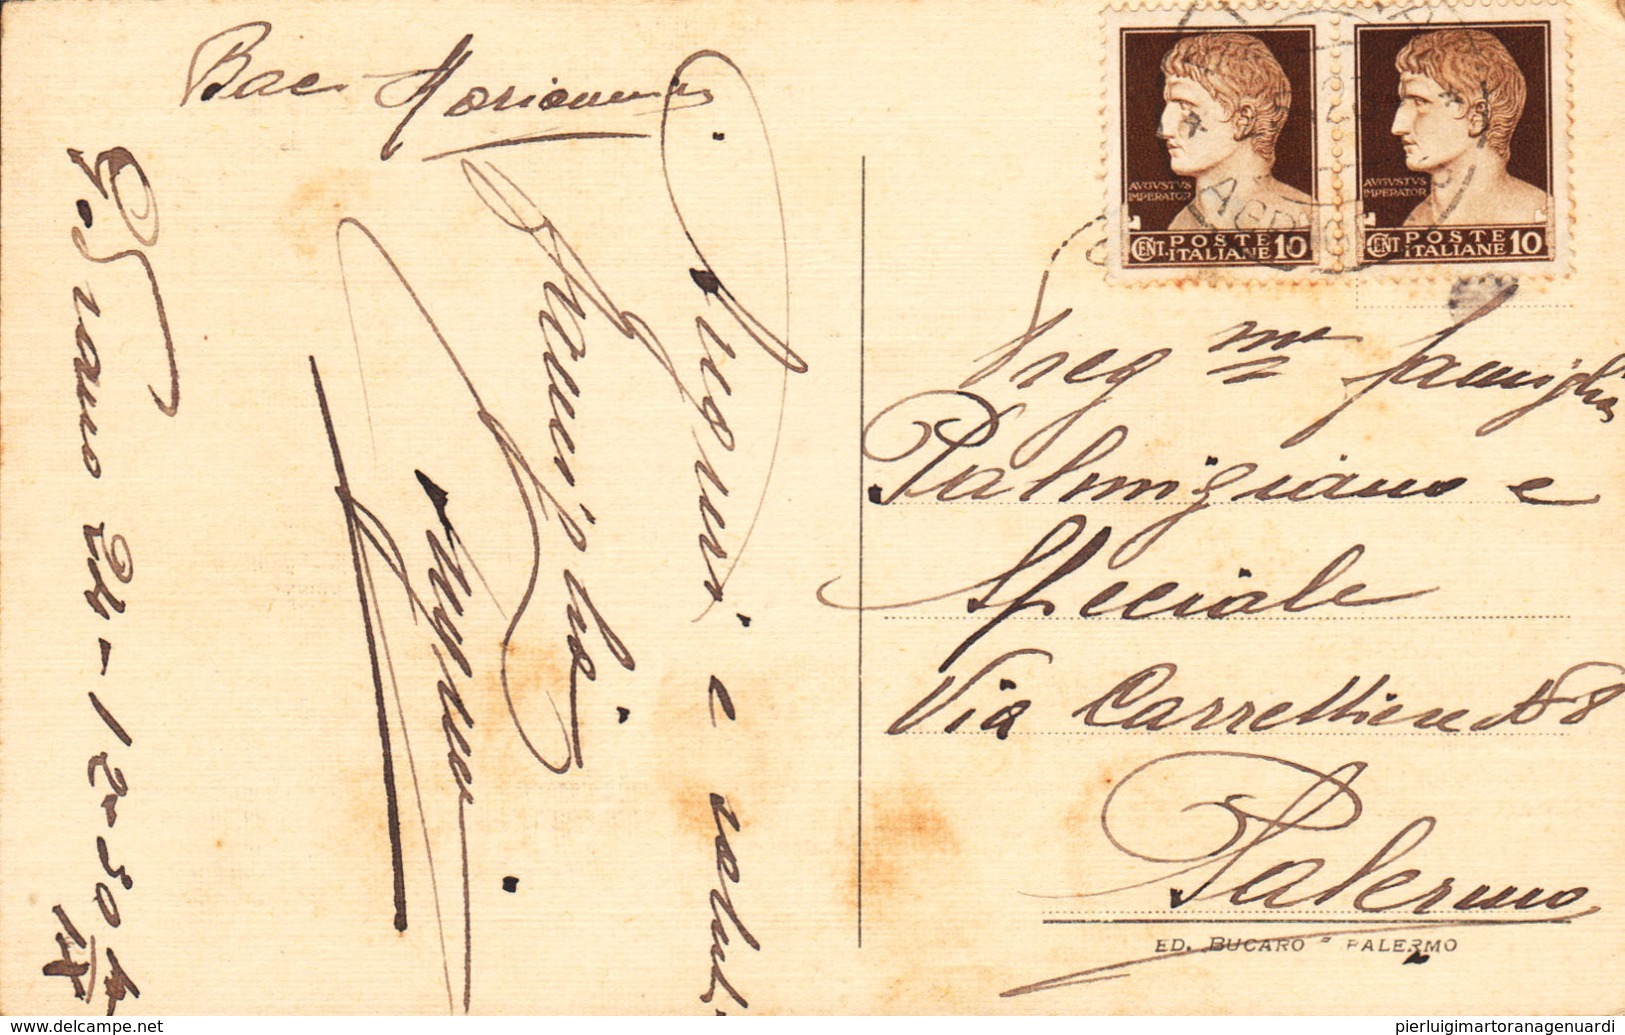 Bac Marianna
Auguri e saluti
Famiglia
24-12-30
IX
AVGVSTVS
IMPERATOR
CENT. POSTE
ITALIANE 10
AVGVSTVS
IMPERATOR
CENT POSTE
ITALIANE 10
Preg ma famiglia
Palmigiano e
Speciale
Via Carrettiere N 8
Palermo
ED. BUCARO - PALERMO
www.delcampe.net
pierluigimartoranagenuardi